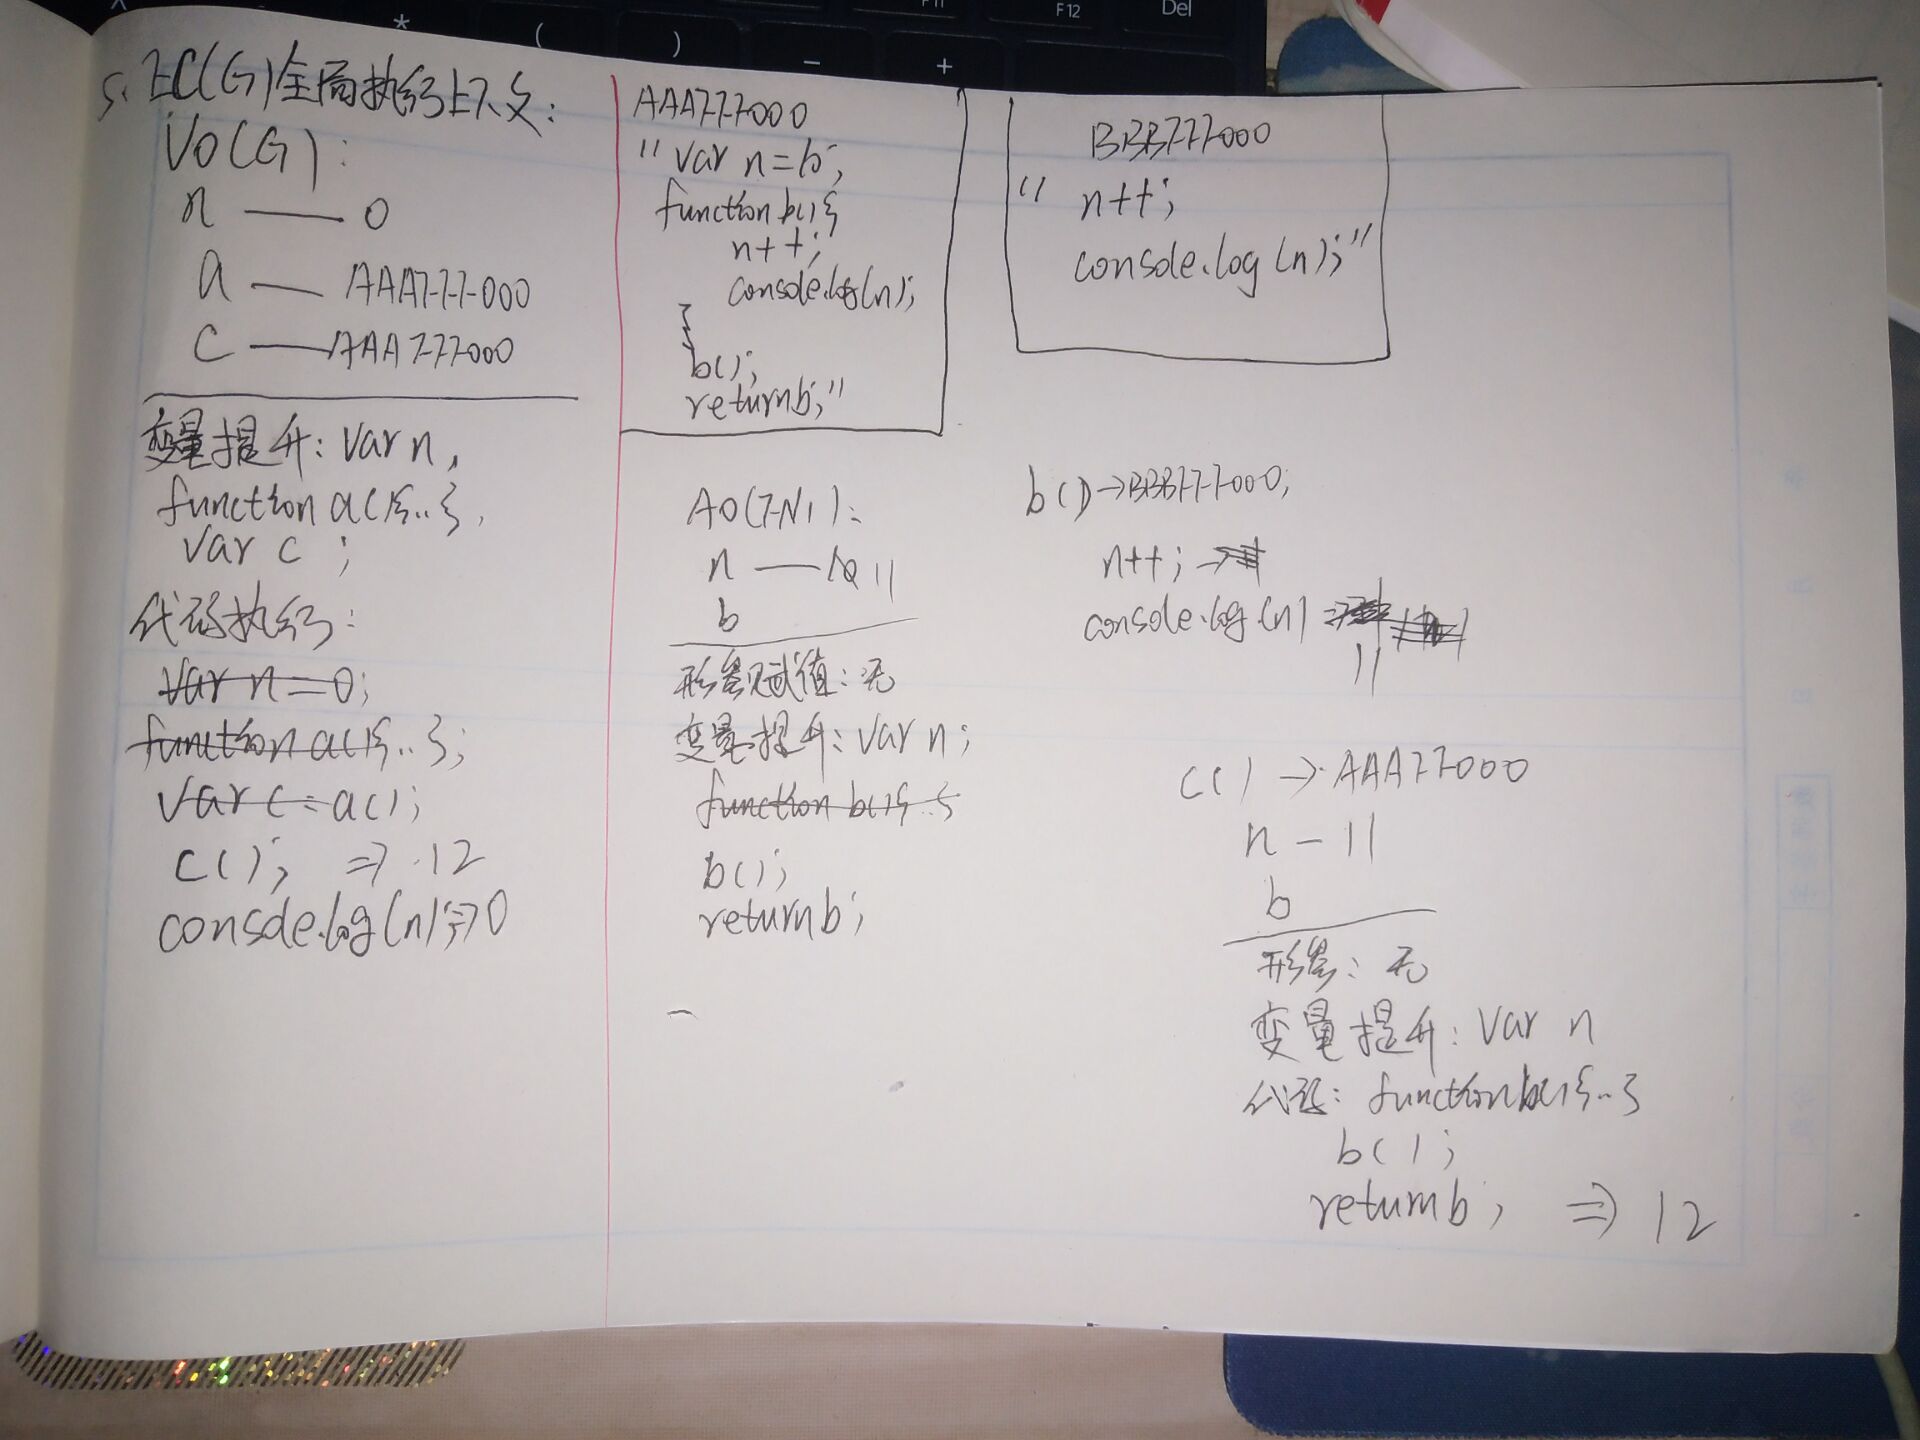 5. EC(G)全局执行上下文:
VO(G):
n —— 0
a — AAAFFF000
c —— AAAFFF000
变量提升: var n,
function a(){..},
var c ;
代码执行:
var n=0;
function a(){..};
var c=a();
c(); => 12
console.log(n);=>0
AAAFFF000
"var n=10;
function b(){
n++;
console.log(n);
}
b();
return b;"
AO(FN1):
n —— 10 11
b
形参赋值: 无
变量提升: var n;
function b(){..}
b();
return b;
BBBFFF000
"n++;
console.log(n);"
b()→BBBFFF000;
n++; →
console.log(n)
11
c() → AAAFF000
n - 11
b
形参: 无
变量提升: var n
代码: function b(){..}
b();
return b; => 12
*
(
)
F11
F12
Del
-
+